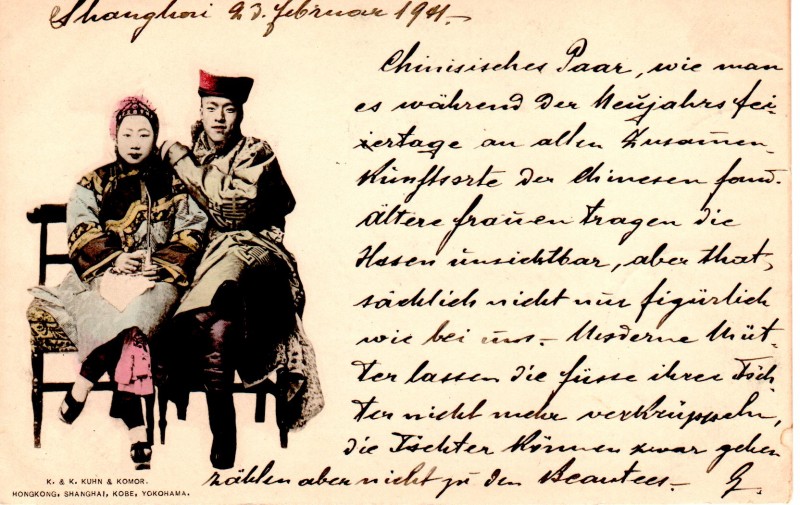 Shanghai 23. februar 1911.–
Chinisisches Paar, wie man
es während der Neujahrs fei-
iertage an allen Zusamen-
künftsorte der Chinesen fand.
ältere frauen tragen die
Hosen unsichtbar, aber that-
sächlich nicht nur figürlich
wie bei uns.– Moderne Müt-
ter lassen die füsse ihrer Töch
ter nicht mehr verkrüppeln,
die Töchter können zwar gehen
zählen aber nicht zu den Beautees.–
K. & K. KUHN & KOMOR.
HONGKONG, SHANGHAI, KOBE, YOKOHAMA.